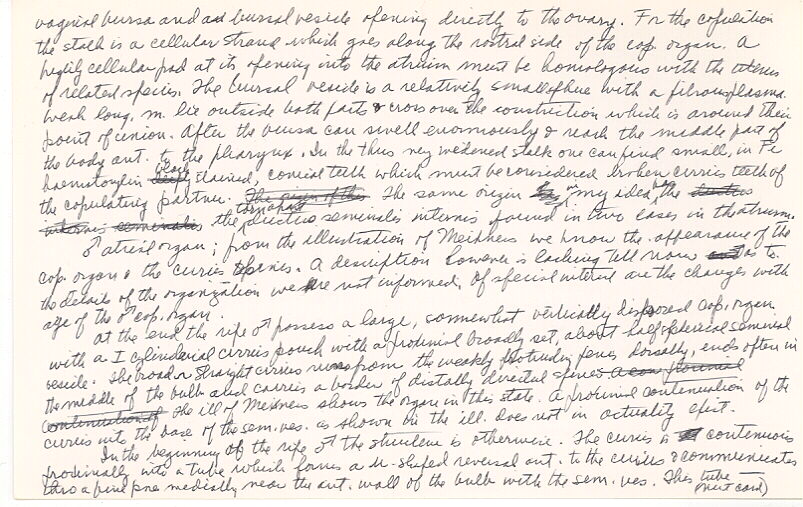 vaginal bursa and a bursal vesicle opening directly to the ovary. For the copulation
the stalk is a cellular strand which goes along the rostral side of the cop. organ. A
highly cellular pad at its opening into the atrium must be homologous with the uterus
of related species. The bursal vesicle is a relatively small sphere with a fibrous plasma.
Weak long. m. lie outside both parts & cross over the constriction which is around their
point of union. After the bursa can swell enormously & reach the middle part of
the body ant. to the pharynx. In the thus very widened stalk one can find small, in Fe
haematoxylin black stained, conical teeth which must be considered broken cirrus teeth of
the copulating partner. The origin of this The same origin in my idea the
internus seminalis the ductus seminalis internis found in two cases in the atrium.
♂ atreal organ; from the illustration of Meixners we know the appearance of the
cop. organ & the cirrus spines. A description however is lacking till now as to
the details of the organization we are not informed. Of special interest are the changes with
age of the ♂ cop. organ.
At the end the ripe ♂ possess a large, somewhat vertically disposed cop. organ
with a I cylindrical cirrus pouch with a proximal broadly set, about half spherical seminal
vesicle. The broad & straight cirrus runs from the weakly protruding penes dorsally, ends often in
the middle of the bulb and carries a border of distally directed spines. A con proximal
continuation of The ill of Meixners shows the organ in this state. A proximal continuation of the
cirrus into the base of the sem. ves. as shown in the ill. does not in actuality exist.
In the beginning of the ripe ♂ the structure is otherwise. The cirrus is continuous
proximally into a tube which forms a U-shaped reversal ant. to the cirrus & communicates
thro a fine pore medially near the ant. wall of the bulb with the sem. ves. This tube —
(next card)